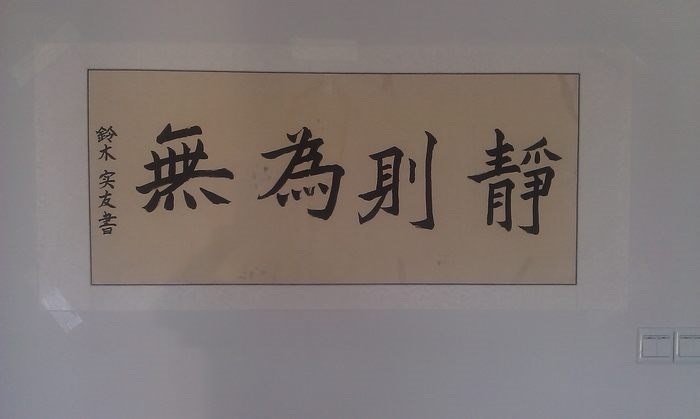 靜則為無
鈴木实友書